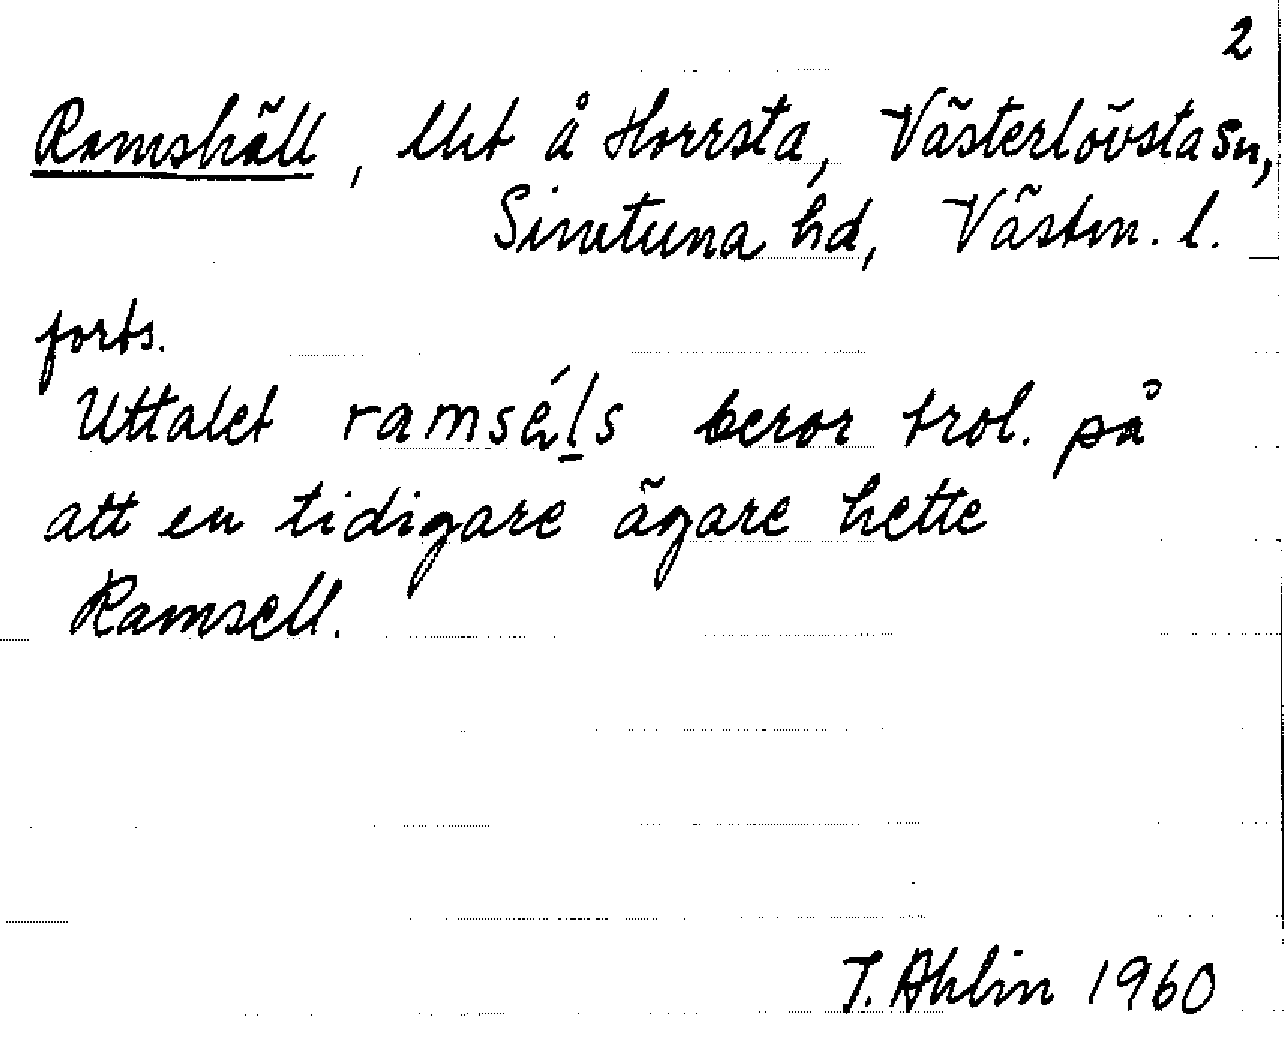 2
Ramshäll, lht å Horrsta, Västerlövsta sn,
Simtuna hd, Västm. l.
forts.
Uttalet ramsé̩ḷs beror trol. på
att en tidigare ägare hette
Ramsell.
T. Ahlin 1960